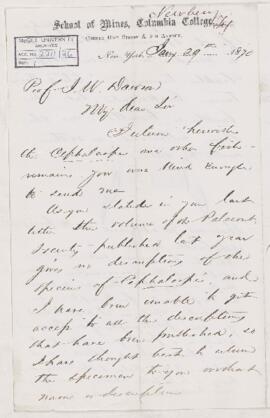 Newberry
School of Mines, Columbia College,
Corner 49th Street & 4th Avenue.
McGILL UNIVERSITY
ARCHIVES
ACC. NO.
REF.
New York, Jany 29th 1870
Prof. J. W. Dawson
My dear Sir
I return herewith
the Cephalaspis and other fish-
remains you were kind enough
to send me
As you stated in your last
letter the volume of the Palaeont.
Society published last year
gives no descriptions of the
species of Cephalaspis, and
I have been unable to get
access to all the descriptions
that have been published, so
I have thought best to return
the specimen to you without
name or description